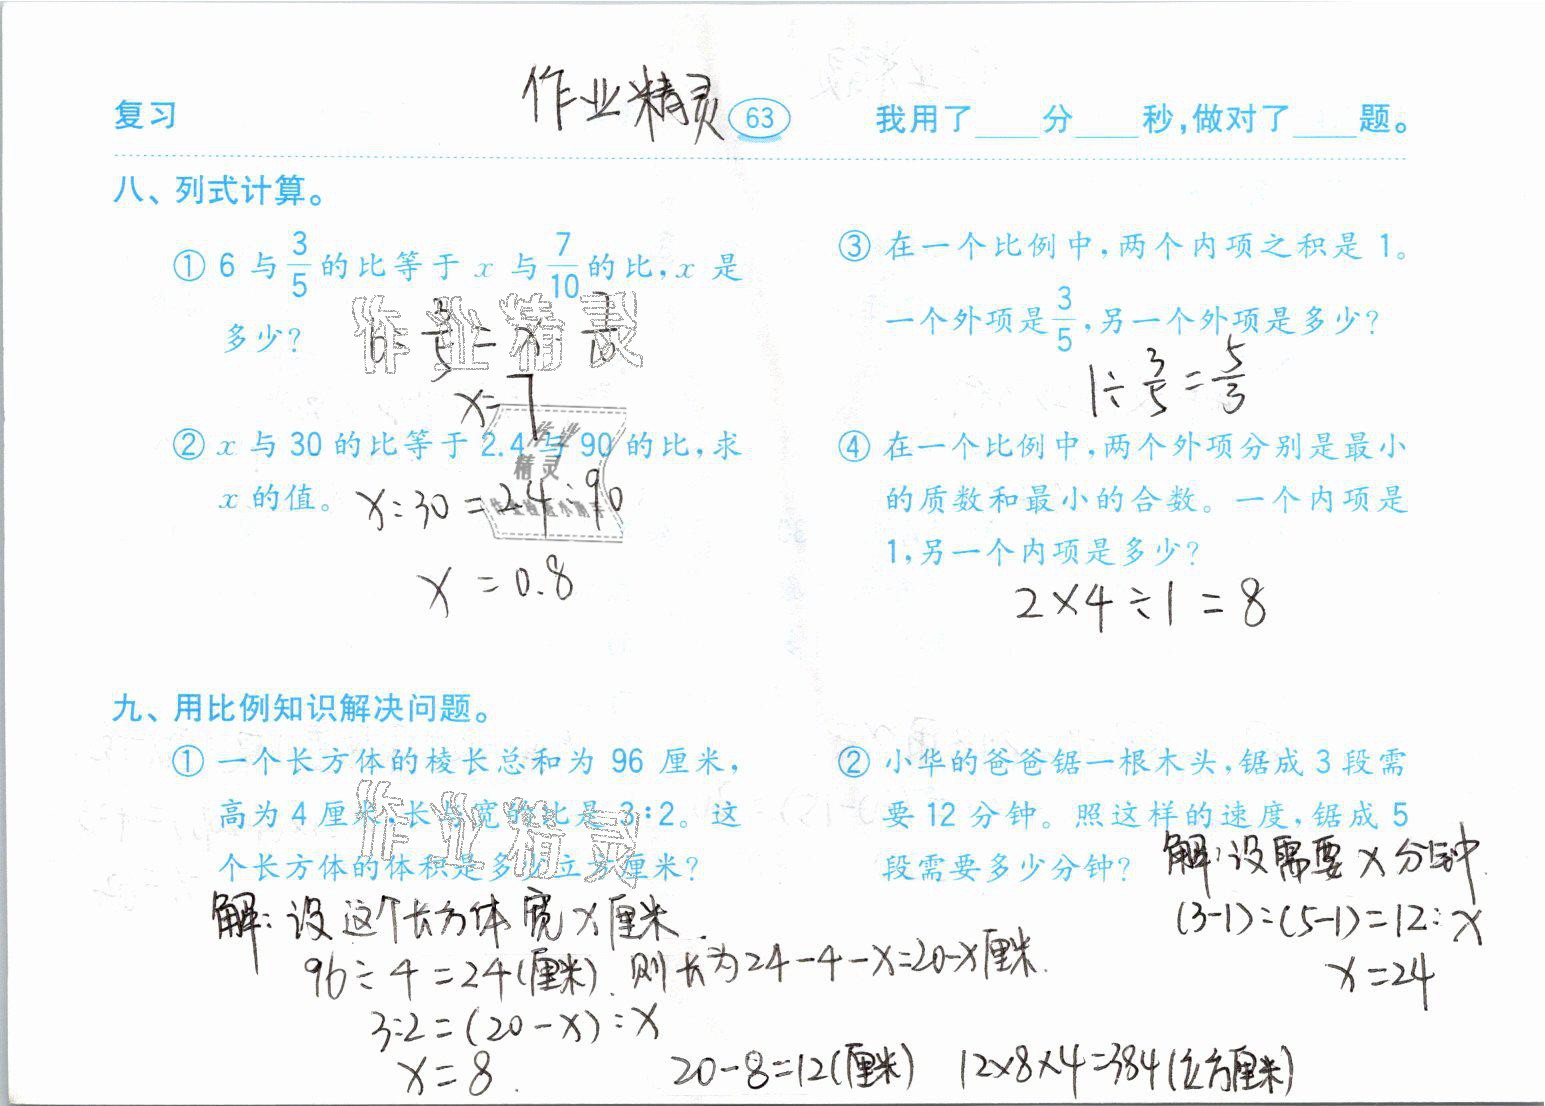 复习
作业精灵
63
我用了____分____秒,做对了____题。
八、列式计算。
① 6 与 3/5 的比等于 x 与 7/10 的比,x 是
多少?
x=7
② x 与 30 的比等于 2.4 与 90 的比,求
x 的值。
x:30=2.4:90
x=0.8
③ 在一个比例中,两个内项之积是 1。
一个外项是 3/5,另一个外项是多少?
1÷3/5=5/3
④ 在一个比例中,两个外项分别是最小
的质数和最小的合数。一个内项是
1,另一个内项是多少?
2×4÷1=8
九、用比例知识解决问题。
① 一个长方体的棱长总和为 96 厘米,
高为 4 厘米,长与宽的比是 3:2。这
个长方体的体积是多少立方厘米?
解:设这个长方体宽x厘米.
96÷4=24(厘米).则长为24-4-x=20-x厘米.
3:2=(20-x):x
x=8.
20-8=12(厘米) 12×8×4=384(立方厘米)
② 小华的爸爸锯一根木头,锯成 3 段需
要 12 分钟。照这样的速度,锯成 5
段需要多少分钟?
解:设需要x分钟.
(3-1):(5-1)=12:x
x=24
作业精灵
作业
精灵
作业精灵